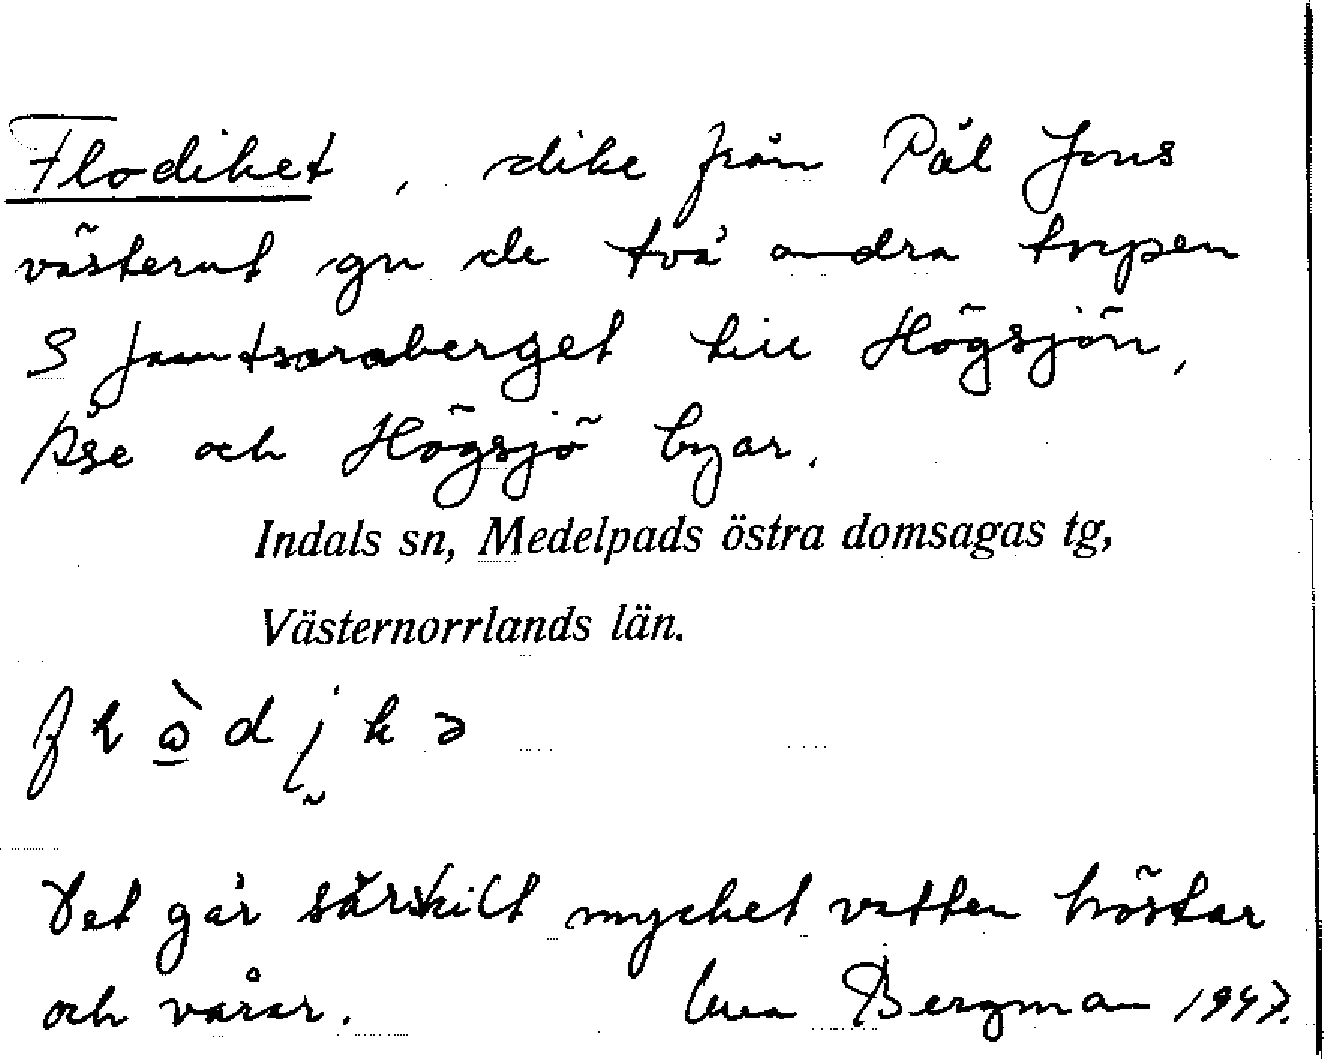 Flodiket, dike från Pål Jons
västerut gn de två andra torpen
S Jamtsaraberget till Högsjön,
Åse och Högsjö byar.
Indals sn, Medelpads östra domsagas tg,
Västernorrlands län.
Det går särskilt mycket vatten höstar
och vårar. Bergman 1947.